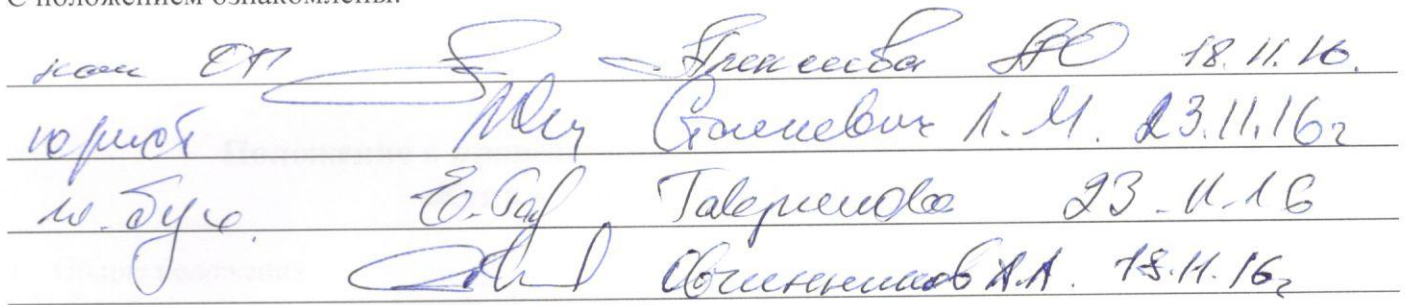 С положением ознакомлены:
нач ОП Алексеева АЮ 18.11.16.
юрист Станкевич Л.М. 23.11.16г
Е.Гав Тавернова 23.11.16
Овчинников А.А. 18.11.16г